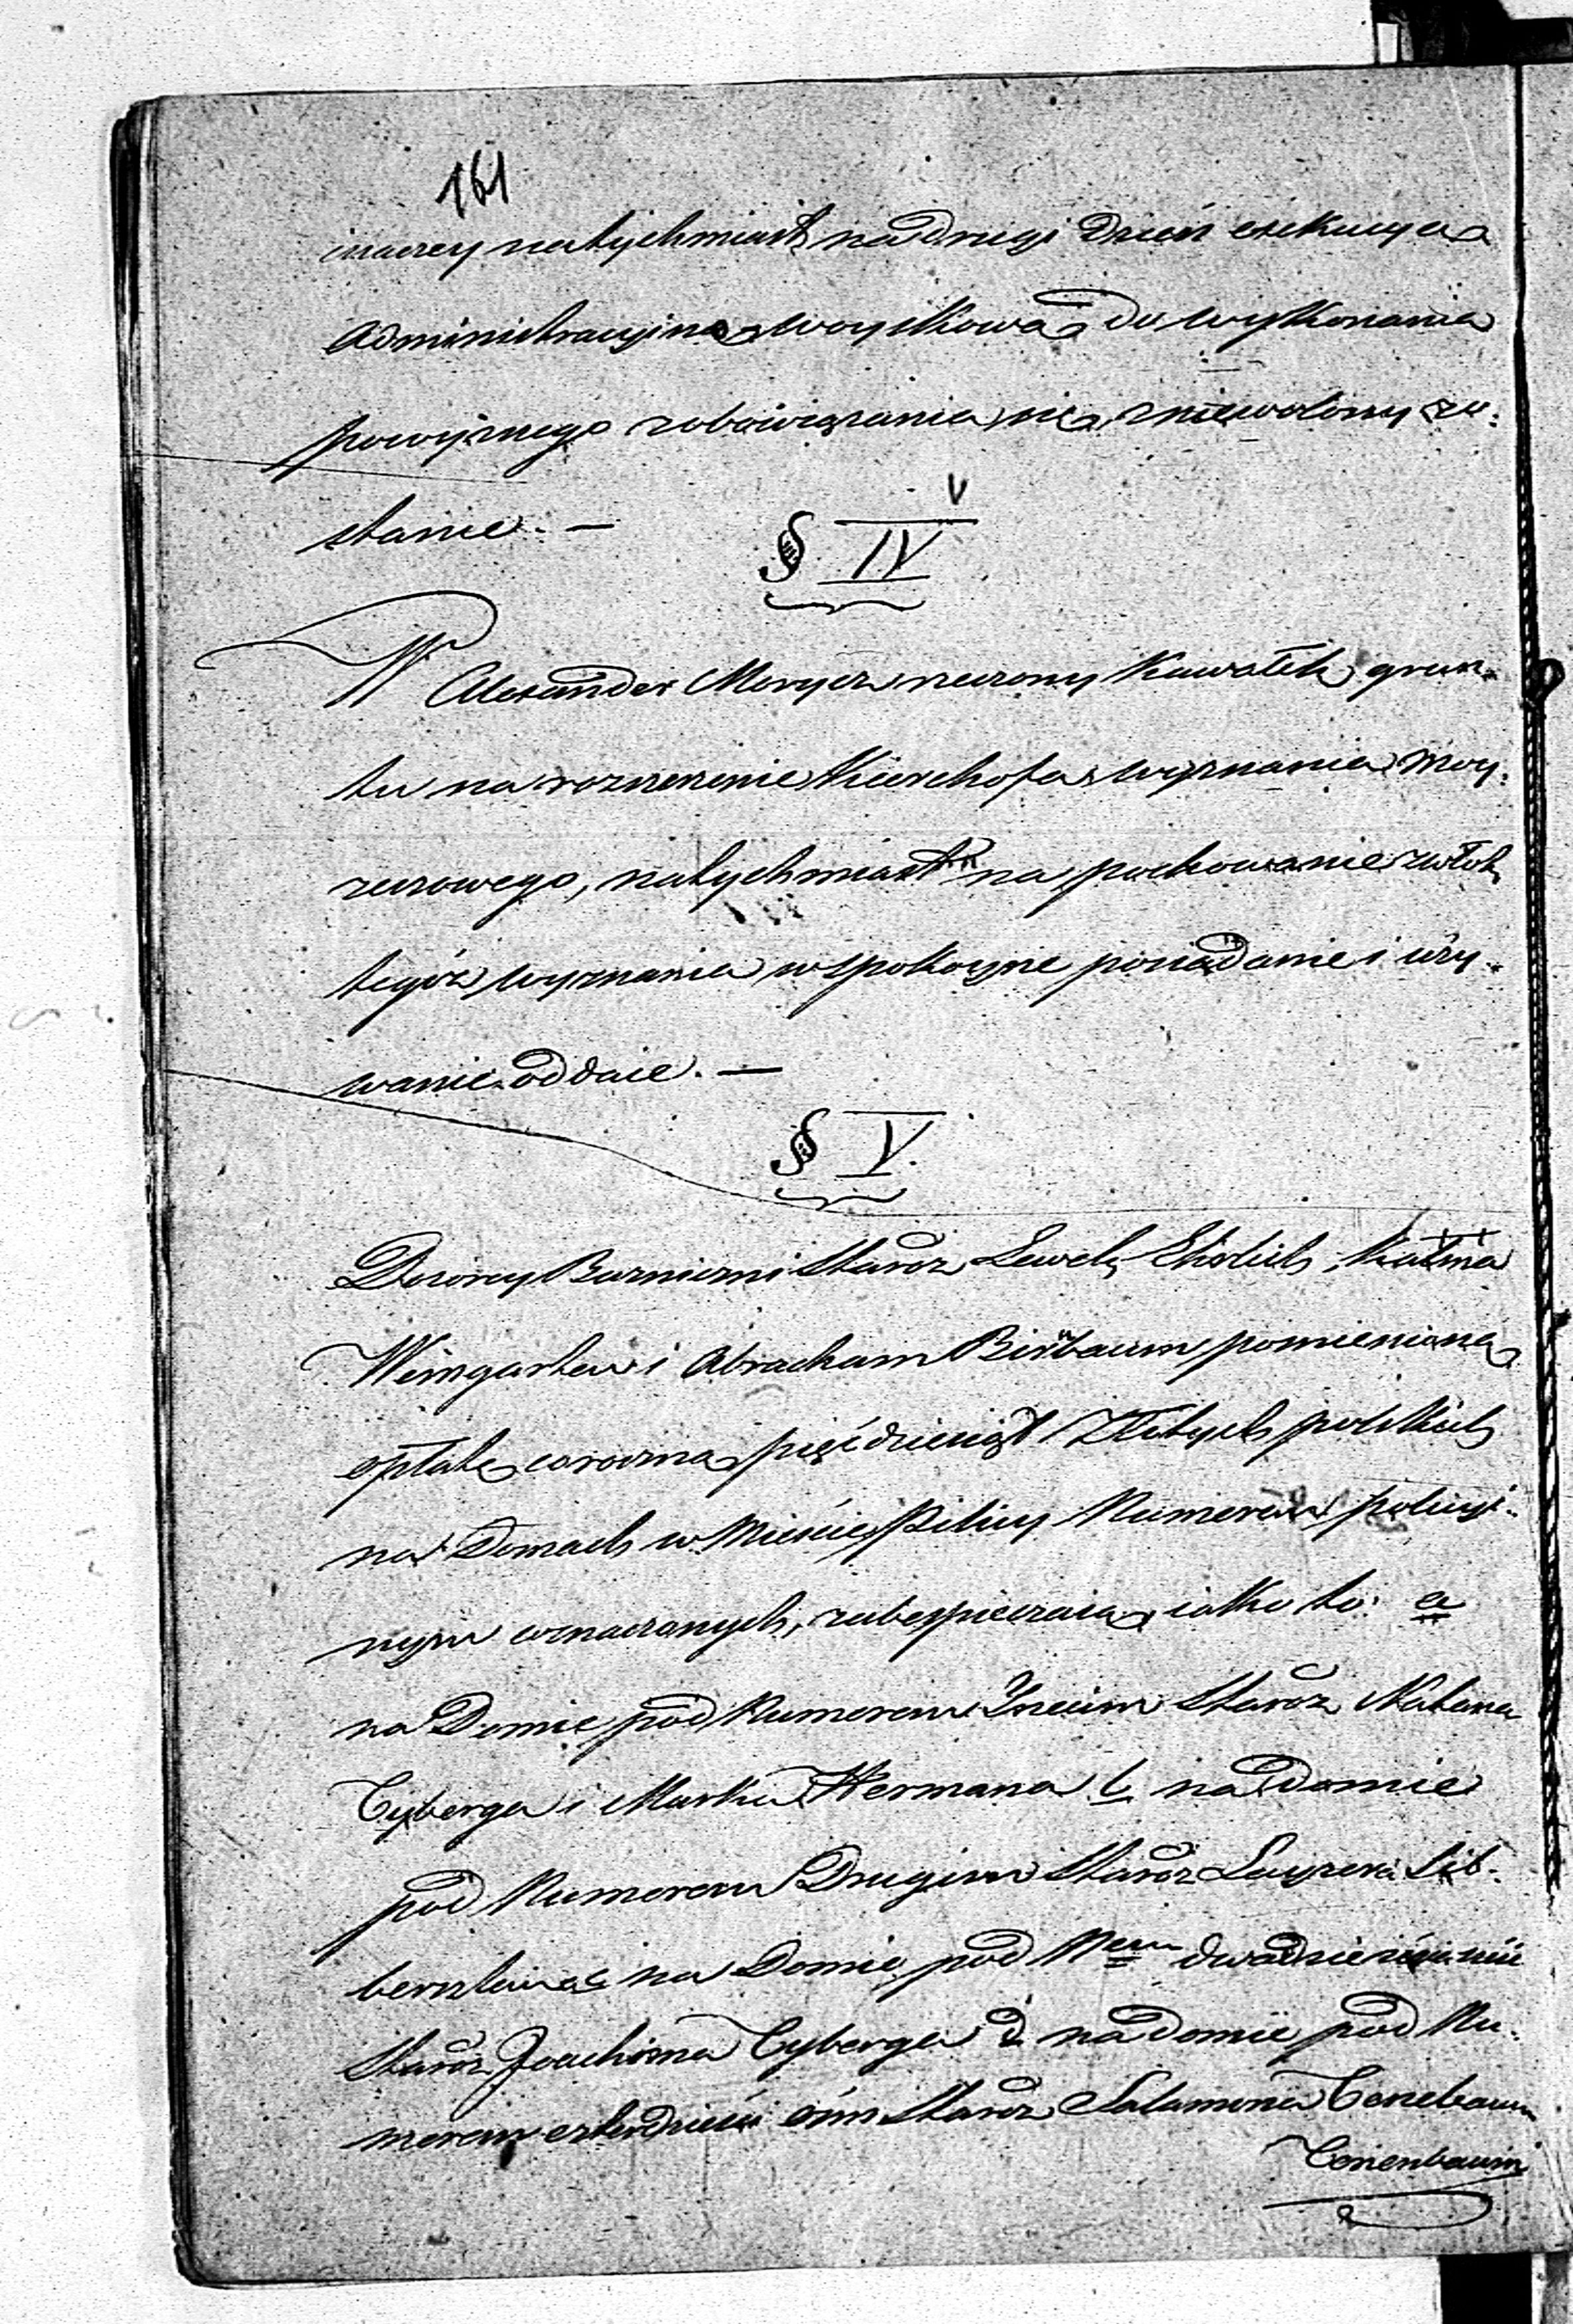 161
inaczey natychmiast na drugi dzień exekucyą
Administracyiną woyskową do wykonania
powyższego zobowiązania się zniewolony zo-
stanie. —
§ IV
W Alexander Moryc rzeczony kawałek grun-
tu na rozszerzenie Kierchofa wyznania moy-
żeszowego, natychmiast na pochowanie zwłok
tegoż wyznania w spokoyne posiadanie i uży-
wanie oddaie. —
§ V.
Dozorcy Bużniczni Staroz Lewek Ehrlich, Kalma
Weingarten i Abracham Birbaum pomienioną
opłatę coroczną pięćdziesiąt Złotych polskich
na Domach w Mieście Pilicy Numerem policyi-
nym oznaczonych, zabespieczaią, iako to: a
na Domie pod Numerem Trzecim Staroz Natana
Cyberga i Marka Hermana b na Domie
pod Numerem Drugim Staroz Layzera Sil-
berszteina c na Domie pod Nrem dwadzieścia
Staroz Joachima Cyberga d na domie pod Nu-
merem czterdzieści ośm Staroz Salamona Tenebaum
Tenenbaum